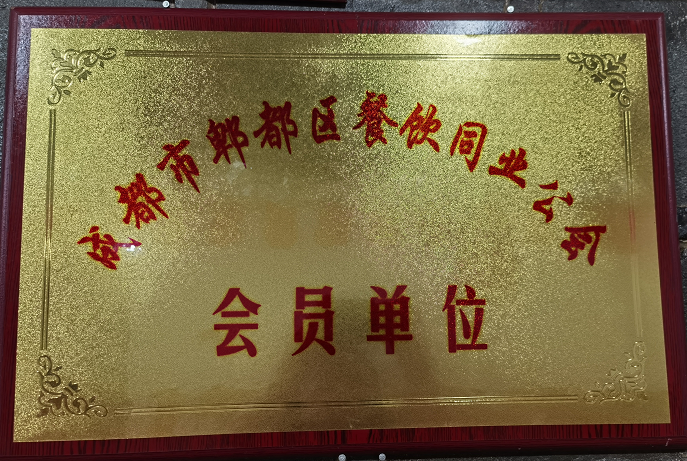 成都市郫都区餐饮同业公会
会员单位